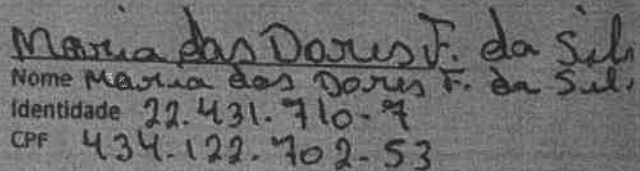 Maria das Dores F. da Sil
Nome Maria das Dores F. da Sil.
Identidade 22.431.710-7
CPF 434.122.702-53